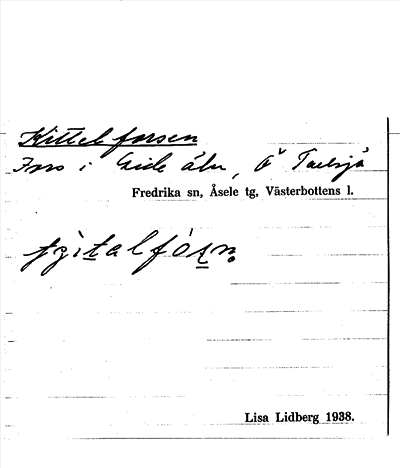 Kittelforsen
Fors i Gide älv, Ö Tallsjö
Fredrika sn, Åsele tg, Västerbottens l.
Lisa Lidberg 1938.